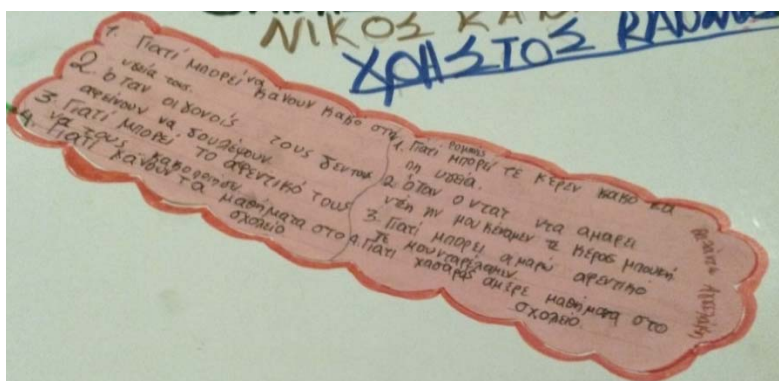 ΝΙΚΟΣ ΚΑΝ
ΧΡΗΣΤΟΣ
1. Γιατί μπορεί να κάνουν κακό στη
υγεία τους.
2. Όταν οι γονοίς τους δεν τους
αφείνουν να δουλέψουν.
3. Γιατί μπορεί το αφεντικό τους
να τους κακοποιήσει
4. Γιατί χάνουν τα μαθήματα στο
σχολείο
Ρομικές
1. Γιατί μπορεί τε κερεν κακό κα
τη υγεία.
2. Όταν ο ντατ ντα αμαρει
ντεη νη μουκέναμεν τε κερας μπουκή
3. Γιατί μπορεί αμαρώ αφεντικό
τε μουνταρέλαμεν
4. Γιατί χασαράς αμερε μαθήματα στο
σχολείο